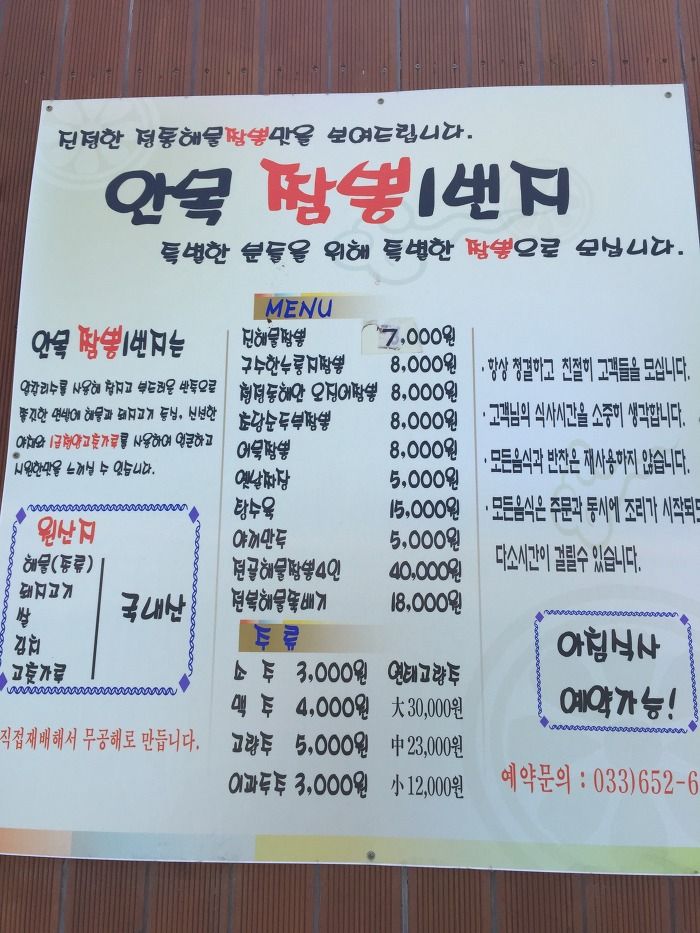 진정한 정통해물짬뽕맛을 보여드립니다.
안목 짬뽕1번지
특별한 분들을 위해 특별한 짬뽕으로 모십니다.
안목 짬뽕1번지는
알칼리수를 사용해 찰지고 부드러움 반죽으로
쫄깃한 면발에 해물과 돼지고기 등심, 신선한
야채와 1근평양고춧가루를 사용하여 얼큰하고
시원한맛을 느끼실 수 있습니다.
원산지
해물(쭈류)
돼지고기
쌀
김치
고춧가루
국내산
직접재배해서 무공해로 만듭니다.
MENU
진해물짬뽕 7,000원
구수한누룽지짬뽕 8,000원
쫄깃통해안 오징어짬뽕 8,000원
초당순두부짬뽕 8,000원
어묵짬뽕 8,000원
옛날짜장 5,000원
탕수육 15,000원
야끼만두 5,000원
전골해물짬뽕4인 40,000원
전복해물뚝빼기 18,000원
주 류
소 주 3,000원 연태고량주
맥 주 4,000원 大 30,000원
고량주 5,000원 中 23,000원
이과두주 3,000원 小 12,000원
· 항상 청결하고 친절히 고객들을 모십니다.
· 고객님의 식사시간을 소중히 생각합니다.
· 모든음식과 반찬은 재사용하지 않습니다.
· 모든음식은 주문과 동시에 조리가 시작되
다소시간이 걸릴수 있습니다.
아침식사
예약가능!
예약문의 : 033)652-6